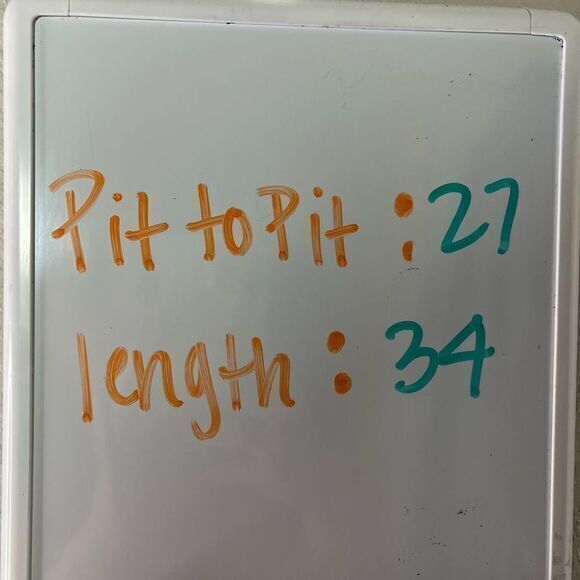 Pit to Pit : 27
length : 34